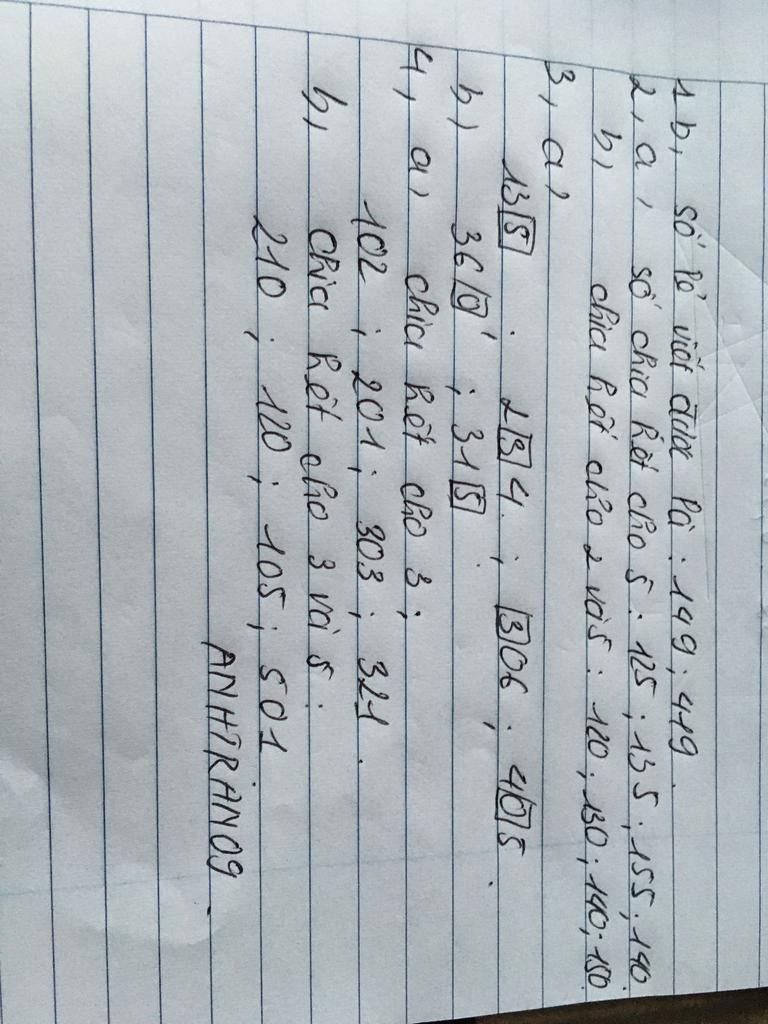 1 b, số lẻ viết được là : 149 ; 419.
2, a, số chia hết cho 5 : 125 ; 135 ; 155 ; 140
b, chia hết cho 2 và 5 : 120 ; 130 ; 140 ; 150.
3, a,
135 . 234 ; 306 ; 405
b, 360 ; 315
4, a, chia hết cho 3 ;
102 ; 201 ; 303 ; 321 .
b, chia hết cho 3 và 5 :
210 ; 120 ; 105 ; 501
ANHTRAN09 .